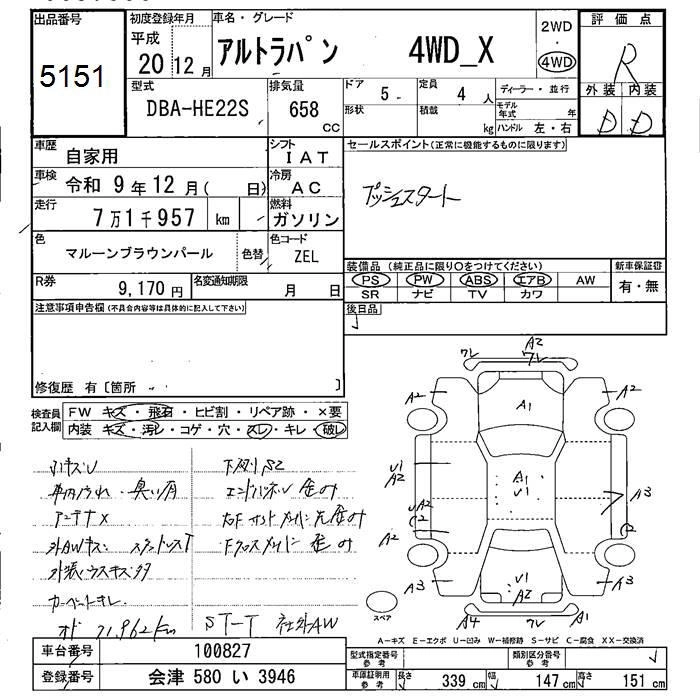 出品番号
5151
初度登録年月
平成
20 12月
車名・グレード
アルトラパン 4WD_X
2WD
・
4WD
評価点
R
外装 内装
D D
型式
DBA-HE22S
排気量
658
cc
ドア
5
形状
定員
4 人
積載
kg
ディーラー・並行
モデル年式 年
ハンドル 左・右
車歴
自家用
シフト
IAT
車検
令和 9年 12月( 日)
冷房
AC
走行
7万1千957 km
燃料
ガソリン
色
マルーンブラウンパール
色替
色コード
ZEL
R券
9,170 円
名変通知期限
月 日
セールスポイント(正常に機能するものに限ります)
プッシュスタート
装備品 (純正品に限り○をつけてください)
PS PW ABS エアB AW
SR ナビ TV カワ
新車保証書
有・無
後日品
注意事項申告欄(不具合内容等は具体的に記入して下さい)
修復歴 有〔箇所 〕
検査員記入欄
FW キズ・飛石・ヒビ割・リペア跡・×要
内装 キズ・汚レ・コゲ・穴・スレ・キレ・破レ
小キズU
下廻りS2
アンテナX
カーペットキレ
71,962km
ST-T 社外AW
A2
ワレ ワレ
A2 A2
A1
U1
A2
A1
U1
A3
UA2
C2
C2
A2
A3 A3
U1
A2
A4 ワレ A1
スペア
A-キズ E-エクボ U-凹み W-補修跡 S-サビ C-腐食 XX-交換済
車台番号 100827
登録番号 会津 580 い 3946
型式指定番号
参考
類別区分番号
参考
車庫証明用
参考
長さ 339 cm 幅 147 cm 高さ 151 cm